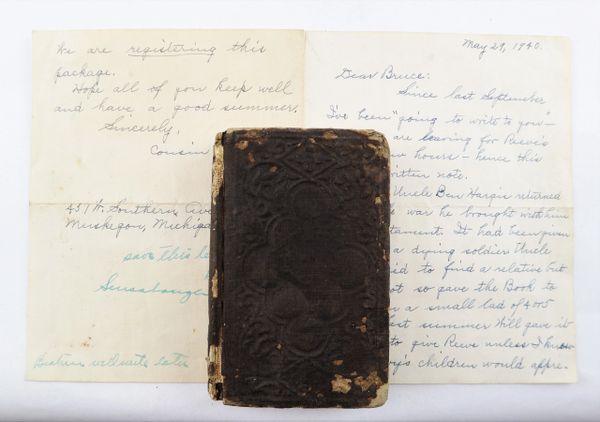 We are registering this
package.
Hope all of you keep well
and have a good summer.
Sincerely,
Cousin
451 W. Southern Ave
Muskegon, Michiga
save this le
May 29, 1940.
Dear Bruce:
Since last September
I've been "going to write to you" —
are leaving for Reeve's
w hours — hence this
written note.
Uncle Ben Hargis returned
e war he brought with him
tament. It had been given
a dying soldier Uncle
id to find a relative but
ot so gave the Book to
n a small lad of 4 or 5
est summer Will gave it
to give Reeve unless I know
y's children would appre-